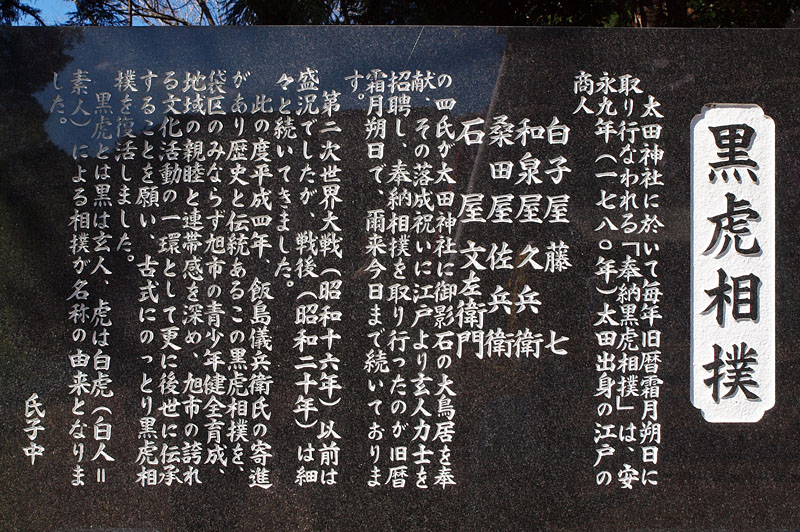 黒虎相撲
太田神社に於いて毎年旧暦霜月朔日に
取り行なわれる「奉納黒虎相撲」は、安
永九年（一七八〇年）太田出身の江戸の
商人
白子屋 藤七
和泉屋 久兵衛
桑田屋 佐兵衛
石屋 文左衛門
の四氏が太田神社に御影石の大鳥居を奉
献、その落成祝いに江戸より玄人力士を
招聘し、奉納相撲を取り行ったのが旧暦
霜月朔日で、爾来今日まで続いておりま
す。
第二次世界大戦（昭和十六年）以前は
盛況でしたが、戦後（昭和二十年）は細
々と続いてきました。
此の度平成四年、飯島儀兵衛氏の寄進
があり歴史と伝統あるこの黒虎相撲を、
袋区のみならず旭市の青少年健全育成、
地域の親睦と連帯感を深め、旭市の誇れ
る文化活動の一環として更に後世に伝承
することを願い、古式にのっとり黒虎相
撲を復活しました。
黒虎とは黒は玄人、虎は白虎（白人＝
素人）による相撲が名称の由来となりま
した。
氏子中